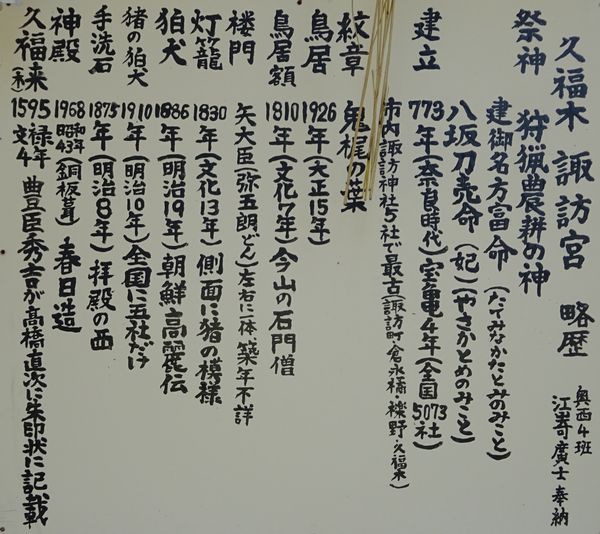 久福木 諏訪宮 略歴
奥西4班
江嵜廣士奉納
祭神 狩猟農耕の神
建御名方富命(たてみなかたとみのみこと)
八坂刀売命(妃)(やさかとめのみこと)
建立 773年(奈良時代)宝亀4年(全国5073社)
市内諏訪神社5社で最古(諏訪町・倉永・橘・櫟野・久福木)
紋章 鬼梶の葉
鳥居 1926年(大正15年)
鳥居額 1810年(文化7年)今山の石門僧
楼門 矢大臣(弥五朗どん)左右に一体、築年不詳
灯籠 1830年(文化13年)側面に猪の模様
狛犬 1886年(明治19年)朝鮮高麗伝
猪の狛犬 1910年(明治10年)全国に五社だけ
手洗石 1875年(明治8年)拝殿の西
神殿 1968昭和43年(銅板葺)春日造
久福来(木) 1595文禄4年 豊臣秀吉が高橋直次に朱印状に記載